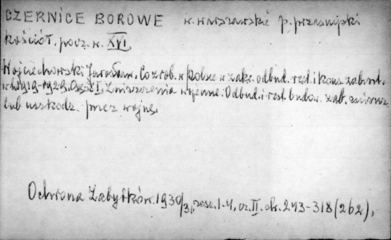 CZERNICE BOROWE w. warszawskie p. przasnyski
kościół, pocz. w. XVI
Wojciechowski Jarosław. Co zrob. w Polsce w zakr. odbud. rest. i kons. zab. arch.
w l. 1919-1929. Część I. Zniszczenia wojenne. Odbud. i rest. budow. zab. zniszcz.
lub uszkodz. przez wojnę.
Ochrona Zabytków. 1930/31, zesz. 1-4, cz. II. str. 243-318 (262).